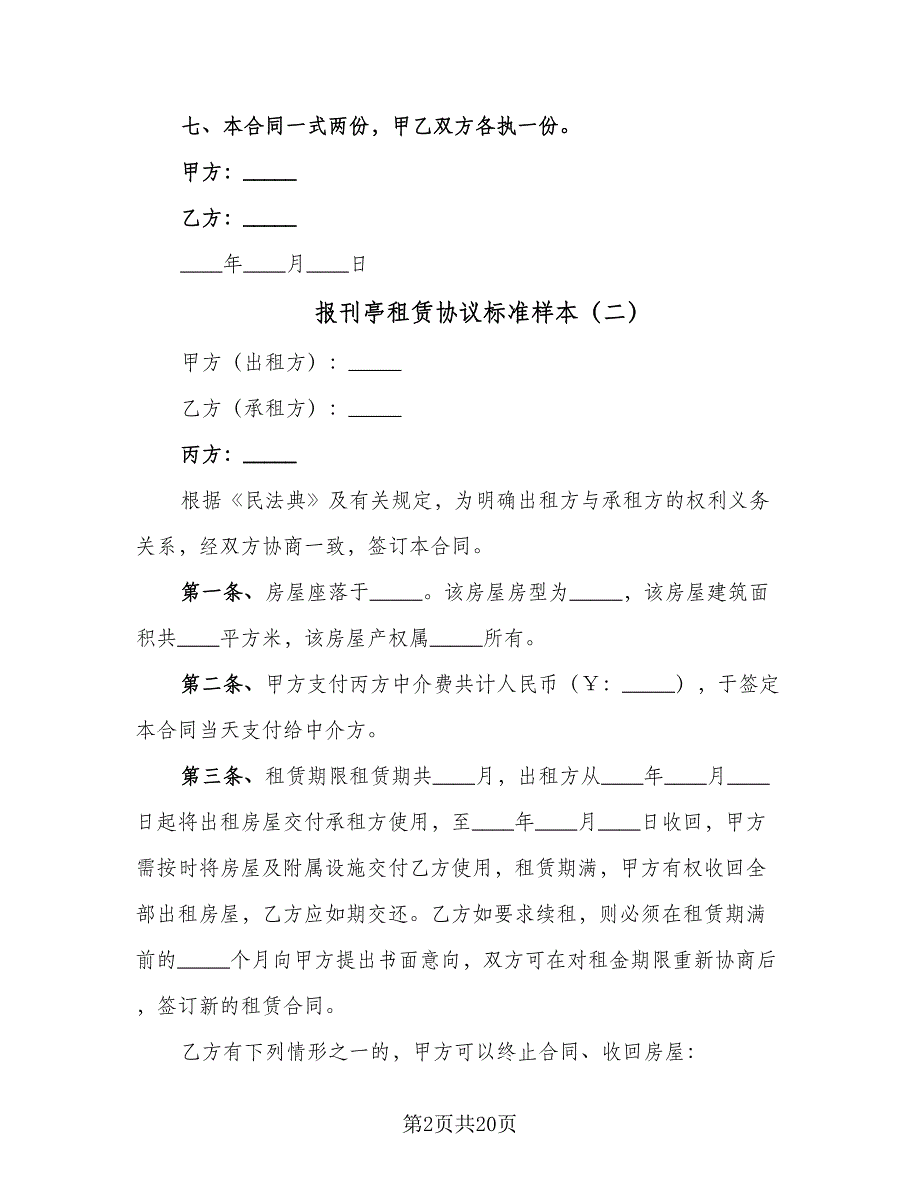 七、本合同一式两份，甲乙双方各执一份。
甲方：_____
乙方：_____
____年____月____日
报刊亭租赁协议标准样本（二）
甲方（出租方）：_____
乙方（承租方）：_____
丙方：_____
根据《民法典》及有关规定，为明确出租方与承租方的权利义务
关系，经双方协商一致，签订本合同。
第一条、房屋座落于_____。该房屋房型为_____，该房屋建筑面
积共____平方米，该房屋产权属_____所有。
第二条、甲方支付丙方中介费共计人民币（￥：_____），于签定
本合同当天支付给中介方。
第三条、租赁期限租赁期共____月，出租方从____年____月____
日起将出租房屋交付承租方使用，至____年____月____日收回，甲方
需按时将房屋及附属设施交付乙方使用，租赁期满，甲方有权收回全
部出租房屋，乙方应如期交还。乙方如要求续租，则必须在租赁期满
前的_____个月向甲方提出书面意向，双方可在对租金期限重新协商后
，签订新的租赁合同。
乙方有下列情形之一的，甲方可以终止合同、收回房屋：
第2页共20页